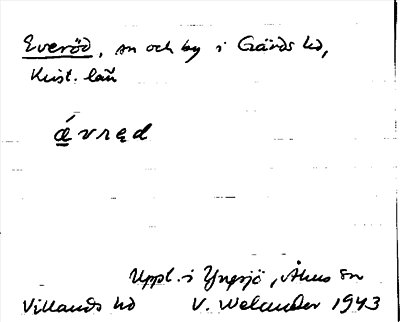 Everöd, sn och by i Gärds hd,
Krist. län
ǽvręd
Uppl. i Yngsjö, Åhus sn
Villands hd V. Welander 1943